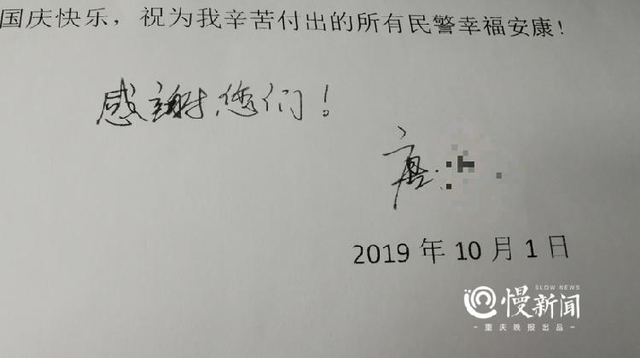 国庆快乐，祝为我辛苦付出的所有民警幸福安康！
感謝您们！
唐
2019 年 10 月 1 日
SLOW NEWS
慢新闻
·重庆晚报出品·